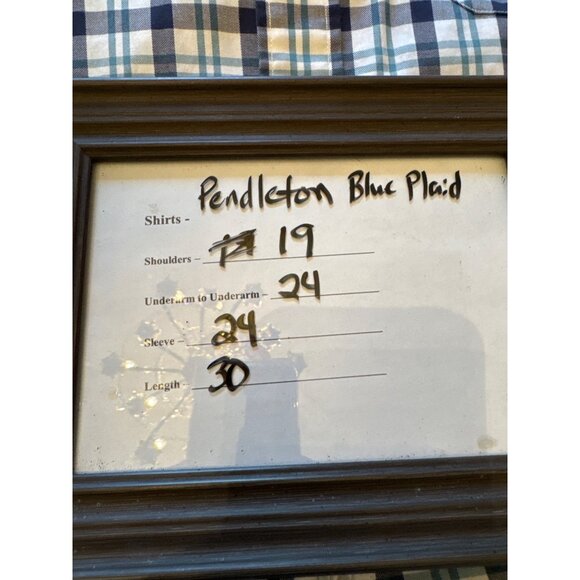 Pendleton Blue Plaid
Shirts -
Shoulders - 19
Underarm to Underarm - 24
Sleeve - 24
Length - 30